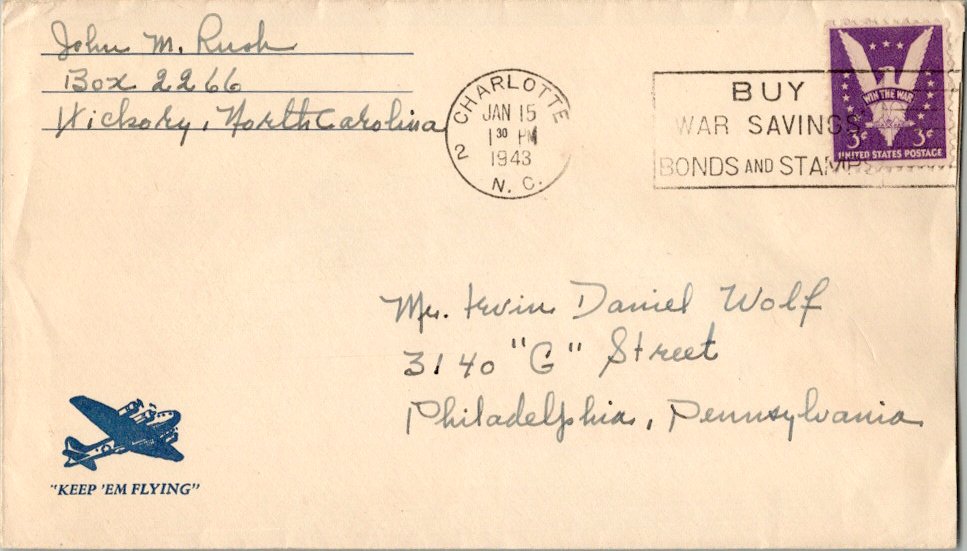 John M. Rush
Box 2266
Hickory, North Carolina
CHARLOTTE
2
JAN 15
1 30 PM
1943
N. C.
BUY
WAR SAVINGS
BONDS AND STAMPS
WIN THE WAR
3¢ 3¢
UNITED STATES POSTAGE
Mr. Irvin Daniel Wolf
3140 "G" Street
Philadelphia, Pennsylvania
"KEEP 'EM FLYING"